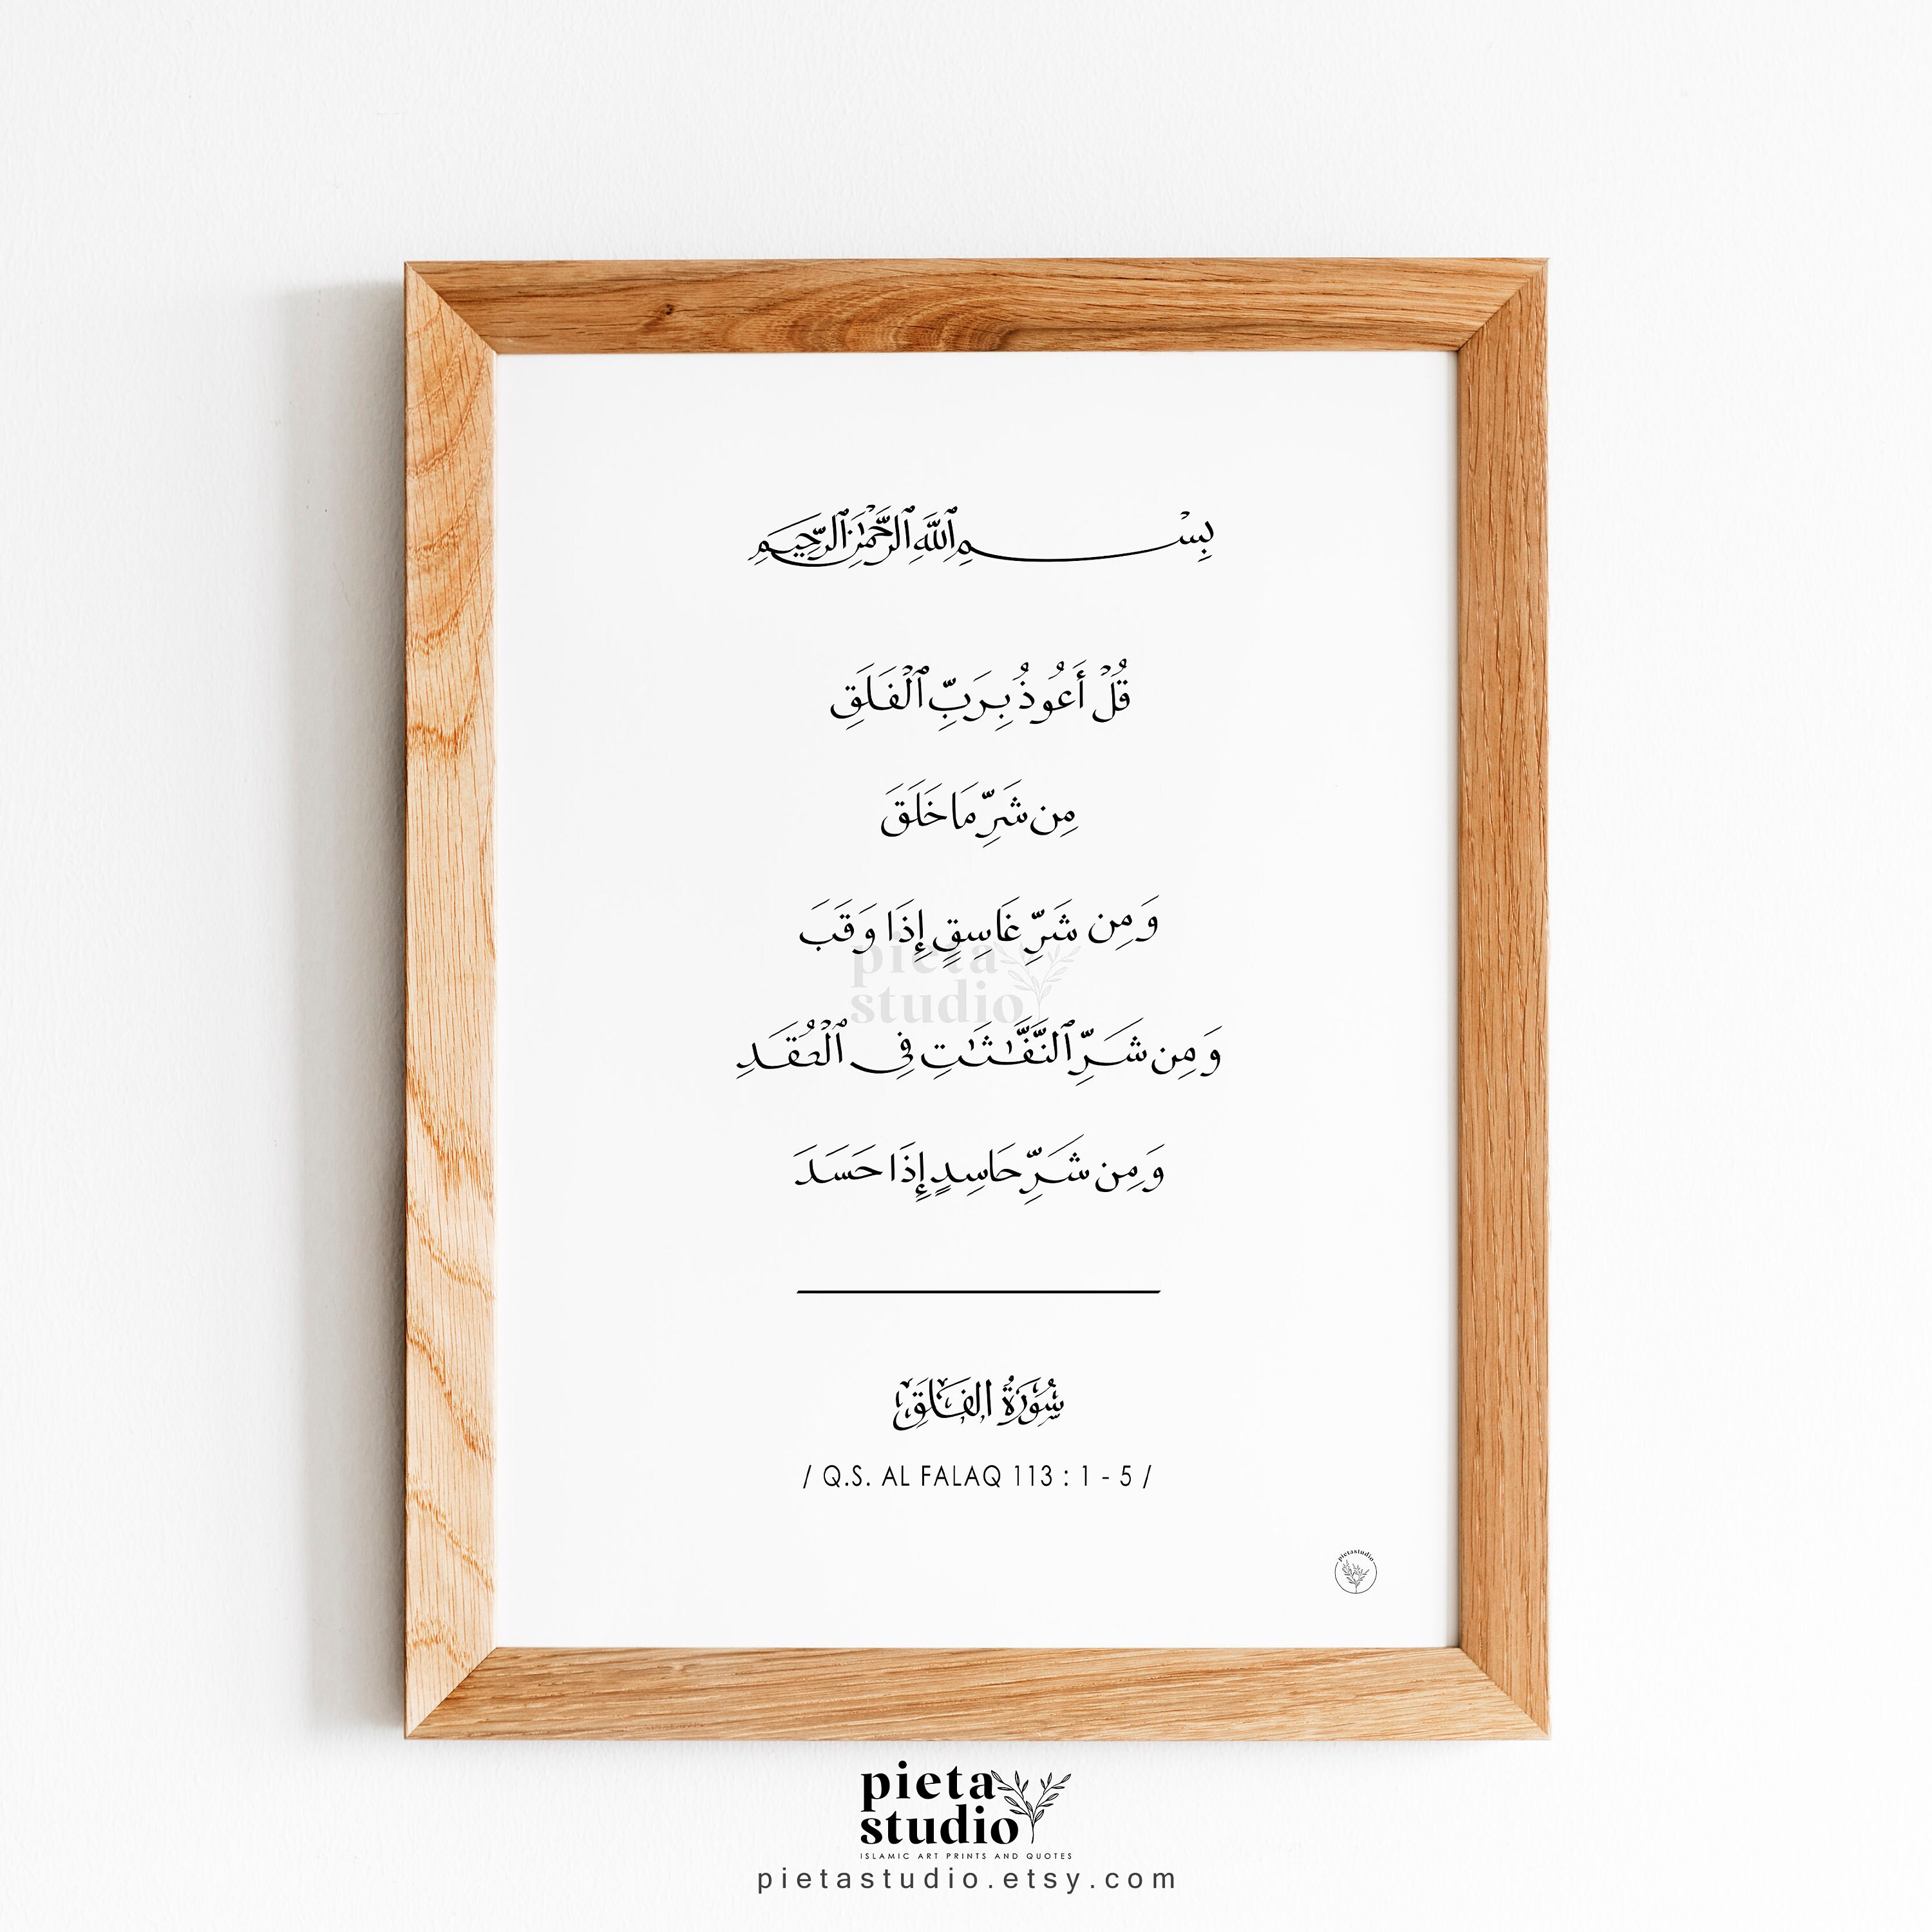 بِسْمِ ٱللَّهِ ٱلرَّحْمَٰنِ ٱلرَّحِيمِ
قُلْ أَعُوذُ بِرَبِّ ٱلْفَلَقِ
مِن شَرِّ مَا خَلَقَ
وَمِن شَرِّ غَاسِقٍ إِذَا وَقَبَ
pieta
studio
وَمِن شَرِّ ٱلنَّفَّٰثَٰتِ فِى ٱلْعُقَدِ
وَمِن شَرِّ حَاسِدٍ إِذَا حَسَدَ
سُورَةُ الفَلَقِ
/ Q.S. AL FALAQ 113 : 1 - 5 /
pietastudio
pieta
studio
ISLAMIC ART PRINTS AND QUOTES
pietastudio.etsy.com